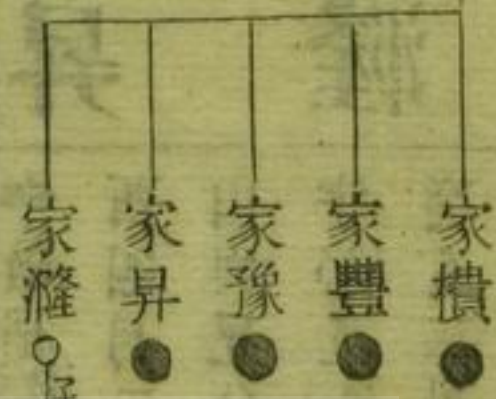 家樻
家豐
家豫
家昇
家漋